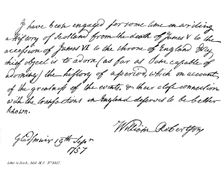 I have been engaged for some time in writing
a History of Scotland from the death of James V to the
accession of James VI to the throne of England. My
chief object is to adorn, as far as I am capable of
adorning, the history of a period, which on account
of the greatness of the events, & their close connection
with the transactions in England deserves to be better
known.
William Robertson
Gladsmuir 19th Sepr
1757